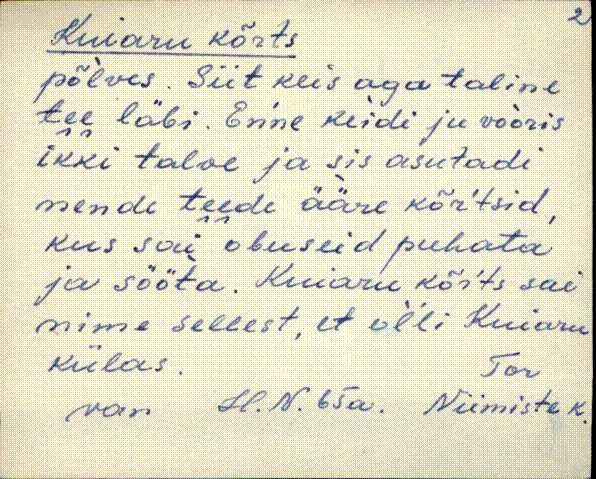 2
Kuiaru kõrts
põlves. Siit keis aga taline
tee läbi. Enne keidi ju vooris
ikki talve ja sis asutadi
nende teede ääre kõrtsid,
kus sai obuseid puhata
ja sööta. Kuiaru kõrts sai
nime sellest, et õlli Kuiaru
külas. Tor
van H.N. 65a. Niimiste k.